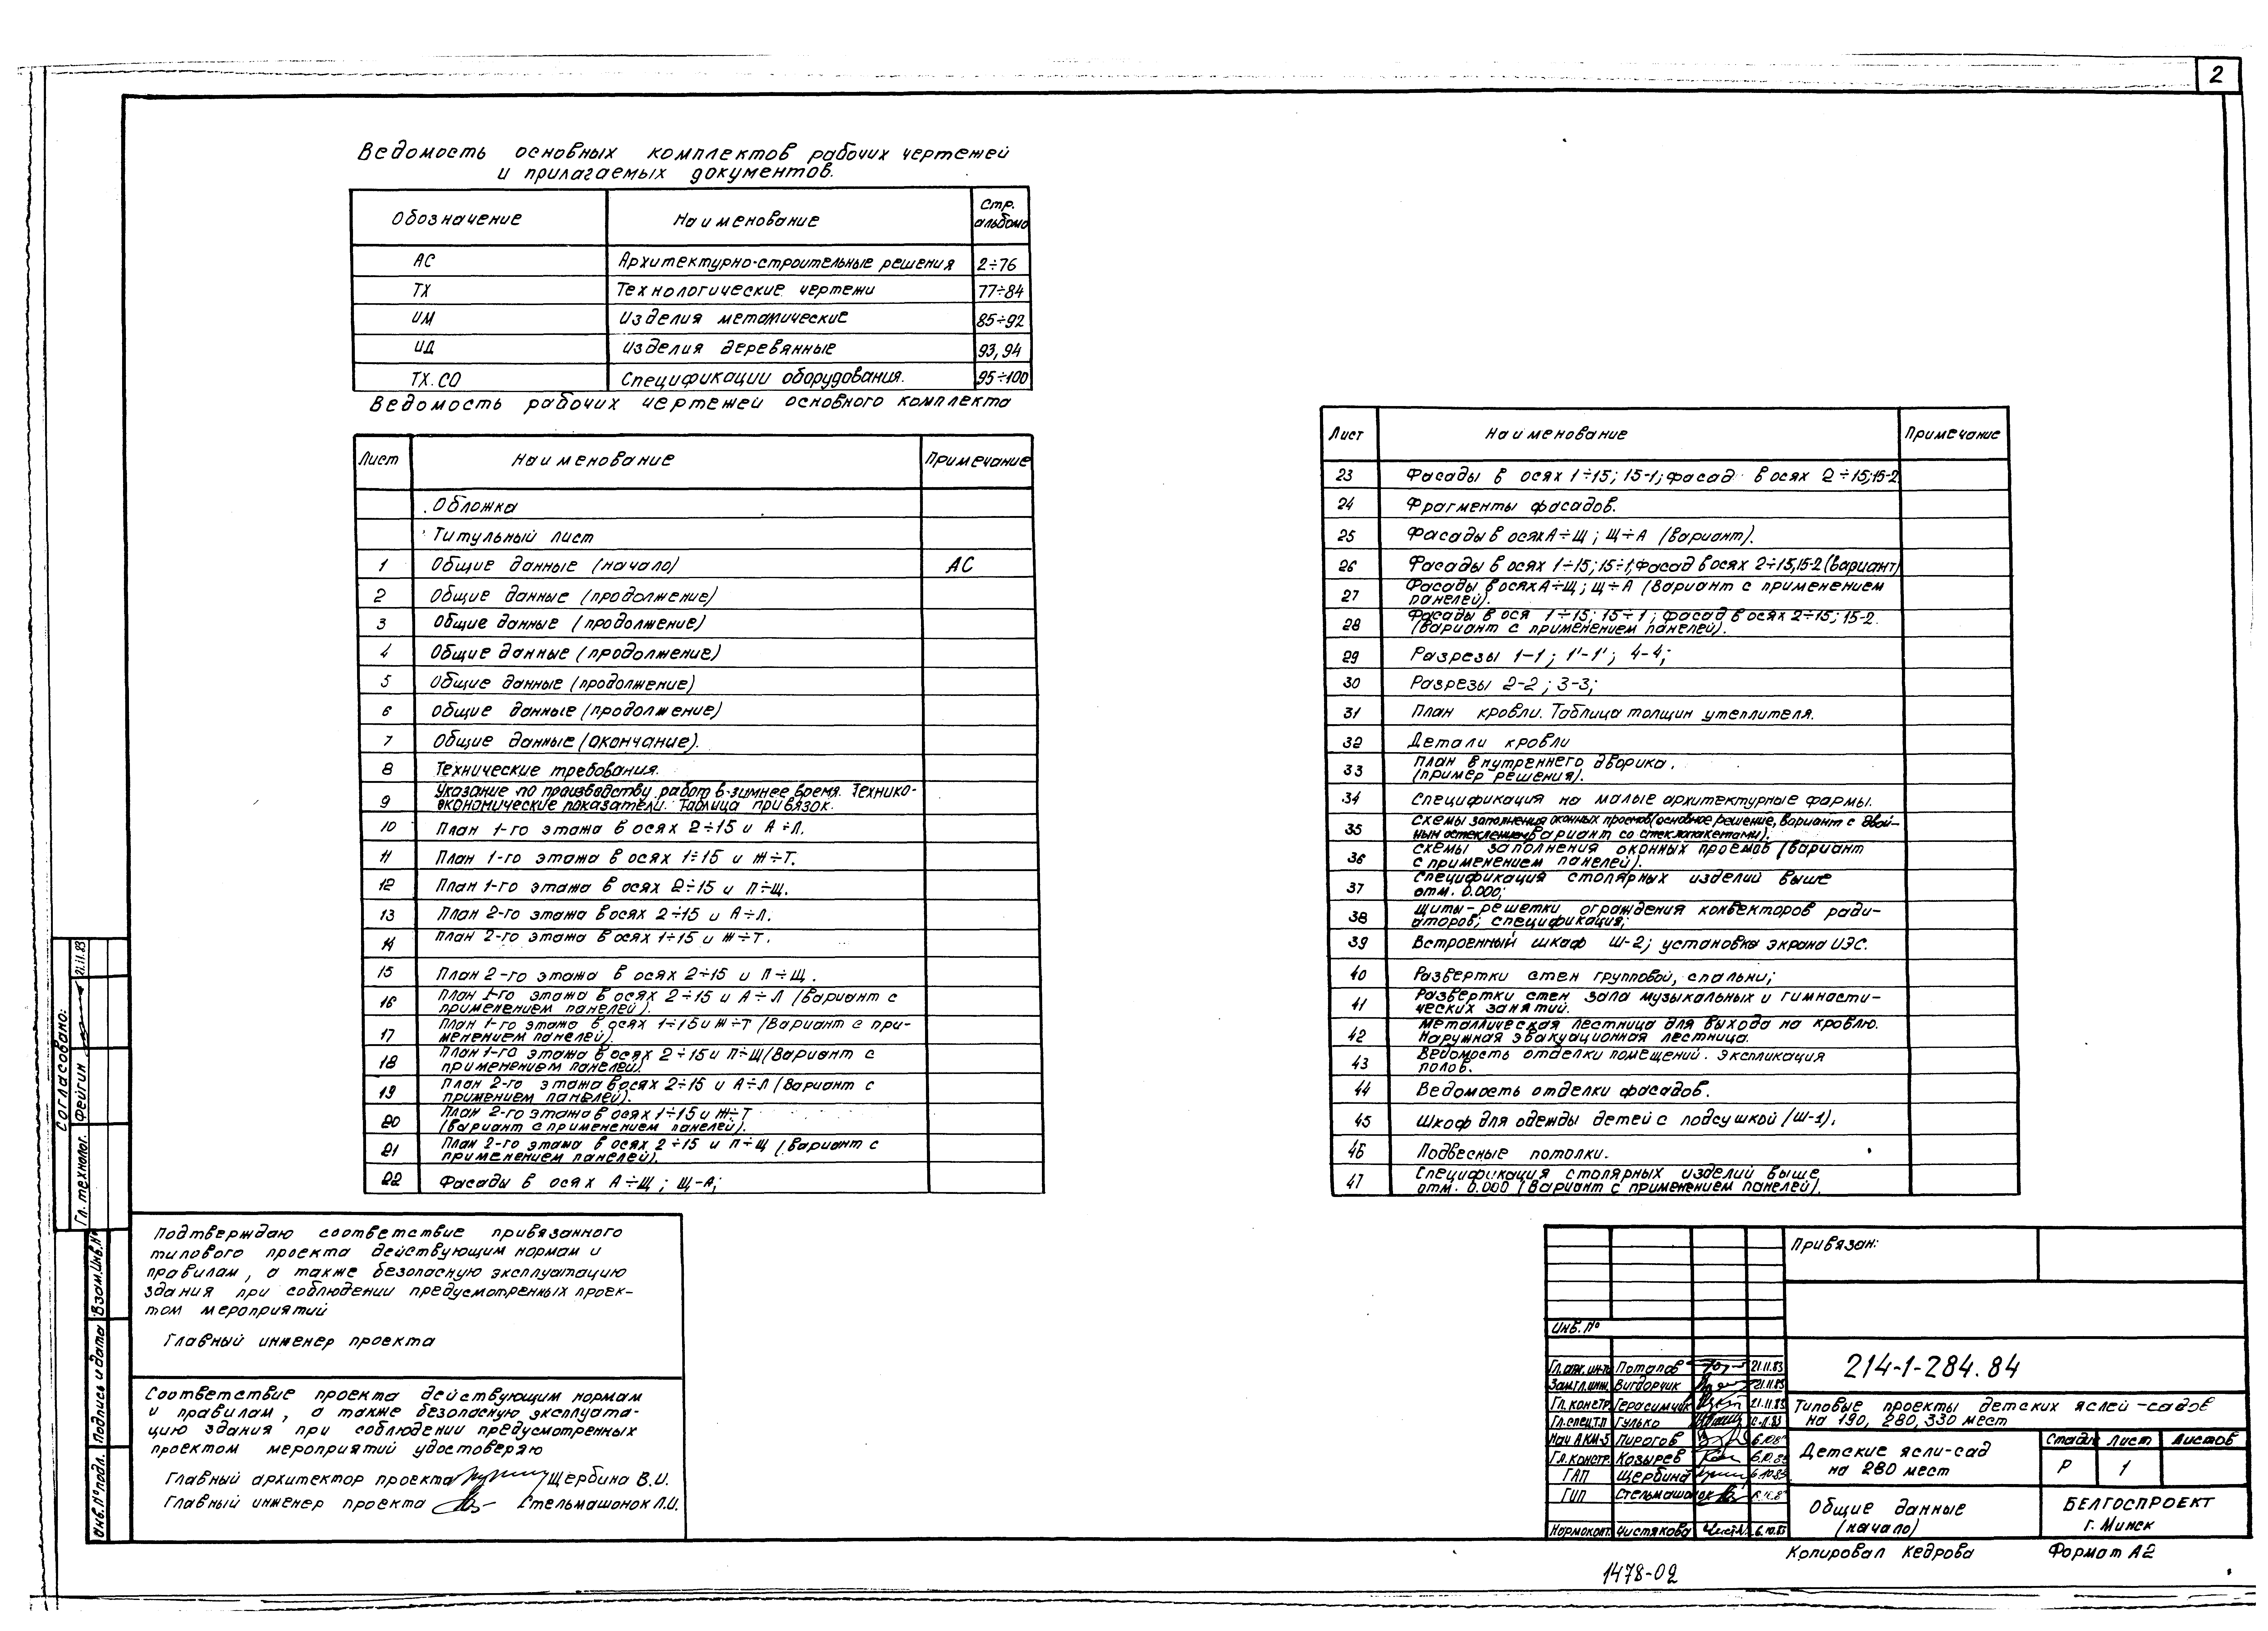 2
Ведомость основных комплектов рабочих чертежей
и прилагаемых документов.
Обозначение Наименование Стр. альбома
АС Архитектурно-строительные решения 2÷76
ТХ Технологические чертежи 77÷84
ИМ Изделия металлические 85÷92
ИД Изделия деревянные 93, 94
ТХ.СО Спецификации оборудования. 95÷100
Ведомость рабочих чертежей основного комплекта
Лист Наименование Примечание
Обложка
Титульный лист
1 Общие данные (начало) АС
2 Общие данные (продолжение)
3 Общие данные (продолжение)
4 Общие данные (продолжение)
5 Общие данные (продолжение)
6 Общие данные (продолжение)
7 Общие данные (окончание).
8 Технические требования.
9 Указание по производству работ в зимнее время. Технико-
экономические показатели. Таблица привязок.
10 План 1-го этажа в осях 2÷15 и А÷Л.
11 План 1-го этажа в осях 1÷15 и Ж÷Т.
12 План 1-го этажа в осях 2÷15 и П÷Щ.
13 План 2-го этажа в осях 2÷15 и А÷Л.
14 План 2-го этажа в осях 1÷15 и Ж÷Т.
15 План 2-го этажа в осях 2÷15 и П÷Щ.
16 План 1-го этажа в осях 2÷15 и А÷Л (вариант с
применением панелей).
17 План 1-го этажа в осях 1÷15 и Ж÷Т (вариант с при-
менением панелей)
18 План 1-го этажа в осях 2÷15 и П÷Щ (вариант с
применением панелей).
19 План 2-го этажа в осях 2÷15 и А÷Л (вариант с
примением панелей).
20 План 2-го этажа в осях 1÷15 и Ж÷Т
(вариант с применением панелей).
21 План 2-го этажа в осях 2÷15 и П÷Щ (вариант с
применением панелей).
22 Фасады в осях А÷Щ; Щ-А;
Лист Наименование Примечание
23 Фасады в осях 1÷15; 15-1; фасад в осях 2÷15; 15-2
24 Фрагменты фасадов.
25 Фасады в осях А÷Щ; Щ÷А (вариант).
26 Фасады в осях 1÷15; 15÷1; фасад в осях 2÷15, 15-2 (вариант)
27 Фасады в осях А÷Щ; Щ÷А (вариант с применением
панелей).
28 Фасады в ося 1÷15; 15÷1; фасад в осях 2÷15; 15-2.
(вариант с применением панелей).
29 Разрезы 1-1; 1'-1'; 4-4;
30 Разрезы 2-2; 3-3;
31 План кровли. Таблица толщин утеплителя.
32 Детали кровли
33 План внутреннего дворика.
(пример решения).
34 Спецификация на малые архитектурные формы.
35 Схемы заполнения оконных проемов (основное решение, вариант с двой-
ным остеклением, вариант со стеклопакетами).
36 Схемы заполнения оконных проемов (вариант
с применением панелей).
37 Спецификация столярных изделий выше
отм. 0.000;
38 Щиты-решетки ограждения конвекторов ради-
аторов; спецификация;
39 Встроенный шкаф Ш-2; установка экрана ИЭС.
40 Развертки стен групповой, спальни;
41 Развертки стен зала музыкальных и гимнасти-
ческих занятий.
42 Металлическая лестница для выхода на кровлю.
Наружная эвакуационная лестница.
43 Ведомость отделки помещений. Экспликация
полов.
44 Ведомость отделки фасадов.
45 Шкаф для одежды детей с подсушкой (Ш-1).
46 Подвесные потолки.
47 Спецификация столярных изделий выше
отм. 0.000 (вариант с применением панелей).
Согласовано:
Гл. технолог. Фейгин 21.11.83
Инв.№ подл. Подпись и дата Взам.Инв.№
Подтверждаю соответствие привязанного
типового проекта действующим нормам и
правилам, а также безопасную эксплуатацию
здания при соблюдении предусмотренных проек-
том мероприятий
Главный инженер проекта
Соответствие проекта действующим нормам
и правилам, а также безопасную эксплуата-
цию здания при соблюдении предусмотренных
проектом мероприятий удостоверяю
Главный архитектор проекта Щербина В.И.
Главный инженер проекта Стельмашонок Л.И.
Привязан:
Инв. №
Гл. арх. ин-та Потапов 21.11.83
Зам.гл.инж. Вигдорчик 21.11.83
Гл. констр. Герасимчик 21.11.83
Гл.спец.ТП Гулько
Нач АКМ-5 Пирогов
Гл.констр. Козырев
ГАП Щербина 6.10.83
ГИП Стельмашонок
Нормоконт. Чистякова 6.10.83
214-1-284.84
Типовые проекты детских яслей-садов
на 190, 280, 330 мест
Детские ясли-сад
на 280 мест
Стадия Лист Листов
Р 1
Общие данные
(начало)
БЕЛГОСПРОЕКТ
г. Минск
Копировал Кедрова Формат А2
1478-02